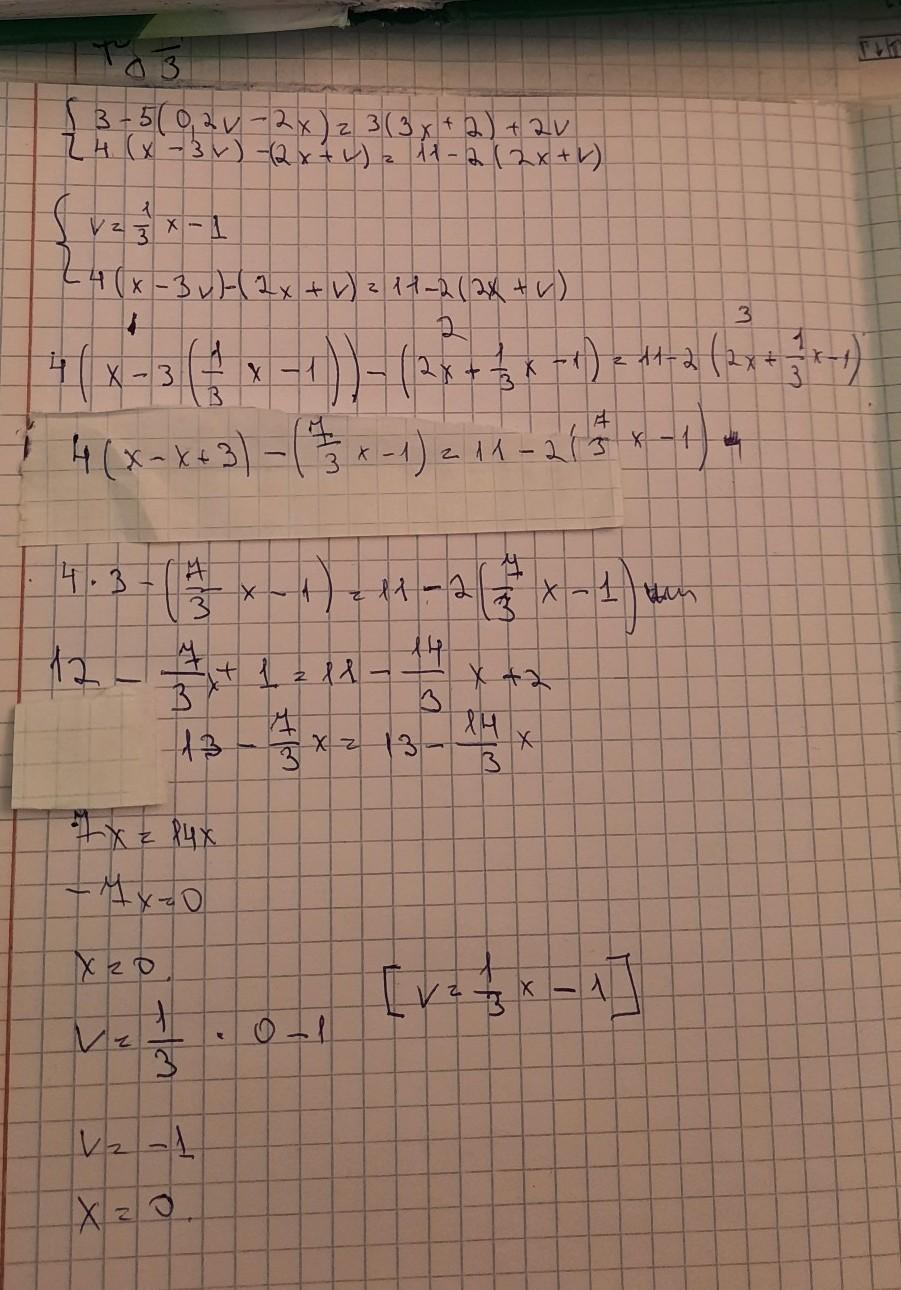 3
{ 3 - 5(0,2v - 2x) = 3(3x + 2) + 2v
4 (x - 3v) - (2x + v) = 11 - 2 (2x + v)
{ v = 1/3 x - 1
4(x - 3v) - (2x + v) = 11 - 2(2x + v)
1 2 3
4(x - 3(1/3 x - 1)) - (2x + 1/3 x - 1) = 11 - 2(2x + 1/3 x - 1)
4(x - x + 3) - (7/3 x - 1) = 11 - 2(7/3 x - 1)
4 · 3 - (7/3 x - 1) = 11 - 2(7/3 x - 1)
12 - 7/3 x + 1 = 11 - 14/3 x + 2
13 - 7/3 x = 13 - 14/3 x
7x = 14x
-7x = 0
x = 0. [v = 1/3 x - 1]
v = 1/3 · 0 - 1
v = -1
x = 0.